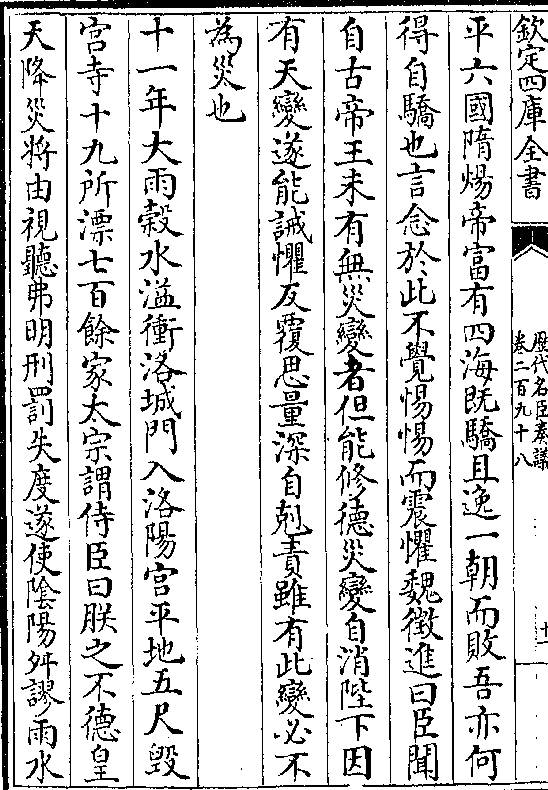 欽定四庫全書
歷代名臣奏議
卷二百九十八
十一
平六國隋煬帝富有四海既驕且逸一朝而敗吾亦何
得自驕也言念於此不覺惕惕而震懼魏徵進曰臣聞
自古帝王未有無災變者但能修德災變自消陛下因
有天變遂能誡懼反覆思量深自剋責雖有此變必不
為災也
十一年大雨榖水溢衝洛城門入洛陽宮平地五尺毀
宮寺十九所漂七百餘家太宗謂侍臣曰朕之不德皇
天降災將由視聽弗明刑罰失度遂使陰陽舛謬雨水